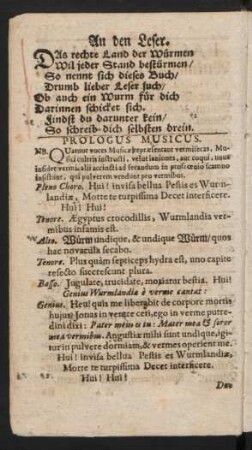 An den Leser.
DAs rechte Land der Würmen
Wil jeder Stand bestürmen/
So nennt sich dieses Buch/
Drumb lieber Leser such/
Ob auch ein Wurm für dich
Darinnen schicket sich.
Findst du darunter kein/
So schreib dich selbsten drein.
PROLOGUS MUSICUS.
NB. QUatuor voces Musicæ repræsentant vermifices, Mu-
sici cultris instructi, velut laniones, aut coqui, unus
insidet vermi alii accincti ad secandum in
insistunt, qui pulverem vendunt pro vermibus.
Pleno Choro. Hui! invisa bellua Pestis es Wurm-
landiæ, Motte te turpissima Decet interficere.
Hui! Hui!
Tenore. Ægyptus crocodillis, Wurmlandia ver-
mibus infamis est.
Alto. Würm undique, & undique Würm/ quos
hac novacula secabo.
Tenore. Plus quàm septiceps hydra est, uno capite
resecto succrescunt plura.
Basso. Jugulate, trucidate, moriatur bestia. Hui!
Genius Wurmlandiæ è verme cantat:
Genius. Heu! quis me liberabit de corpore mortis
hujus Jonas in ventre ceti, ego in verme putre-
dini dixi: Pater meus es tu: Mater mea & soror
mea vermibus. Angustiæ mihi sunt undique, igi-
tur in pulvere dormiam, & vermes operient me.
Hui! invisa bellua Pestis es Wurmlandiæ,
Motte te turpissima Decet interficere.
Hui! Hui!